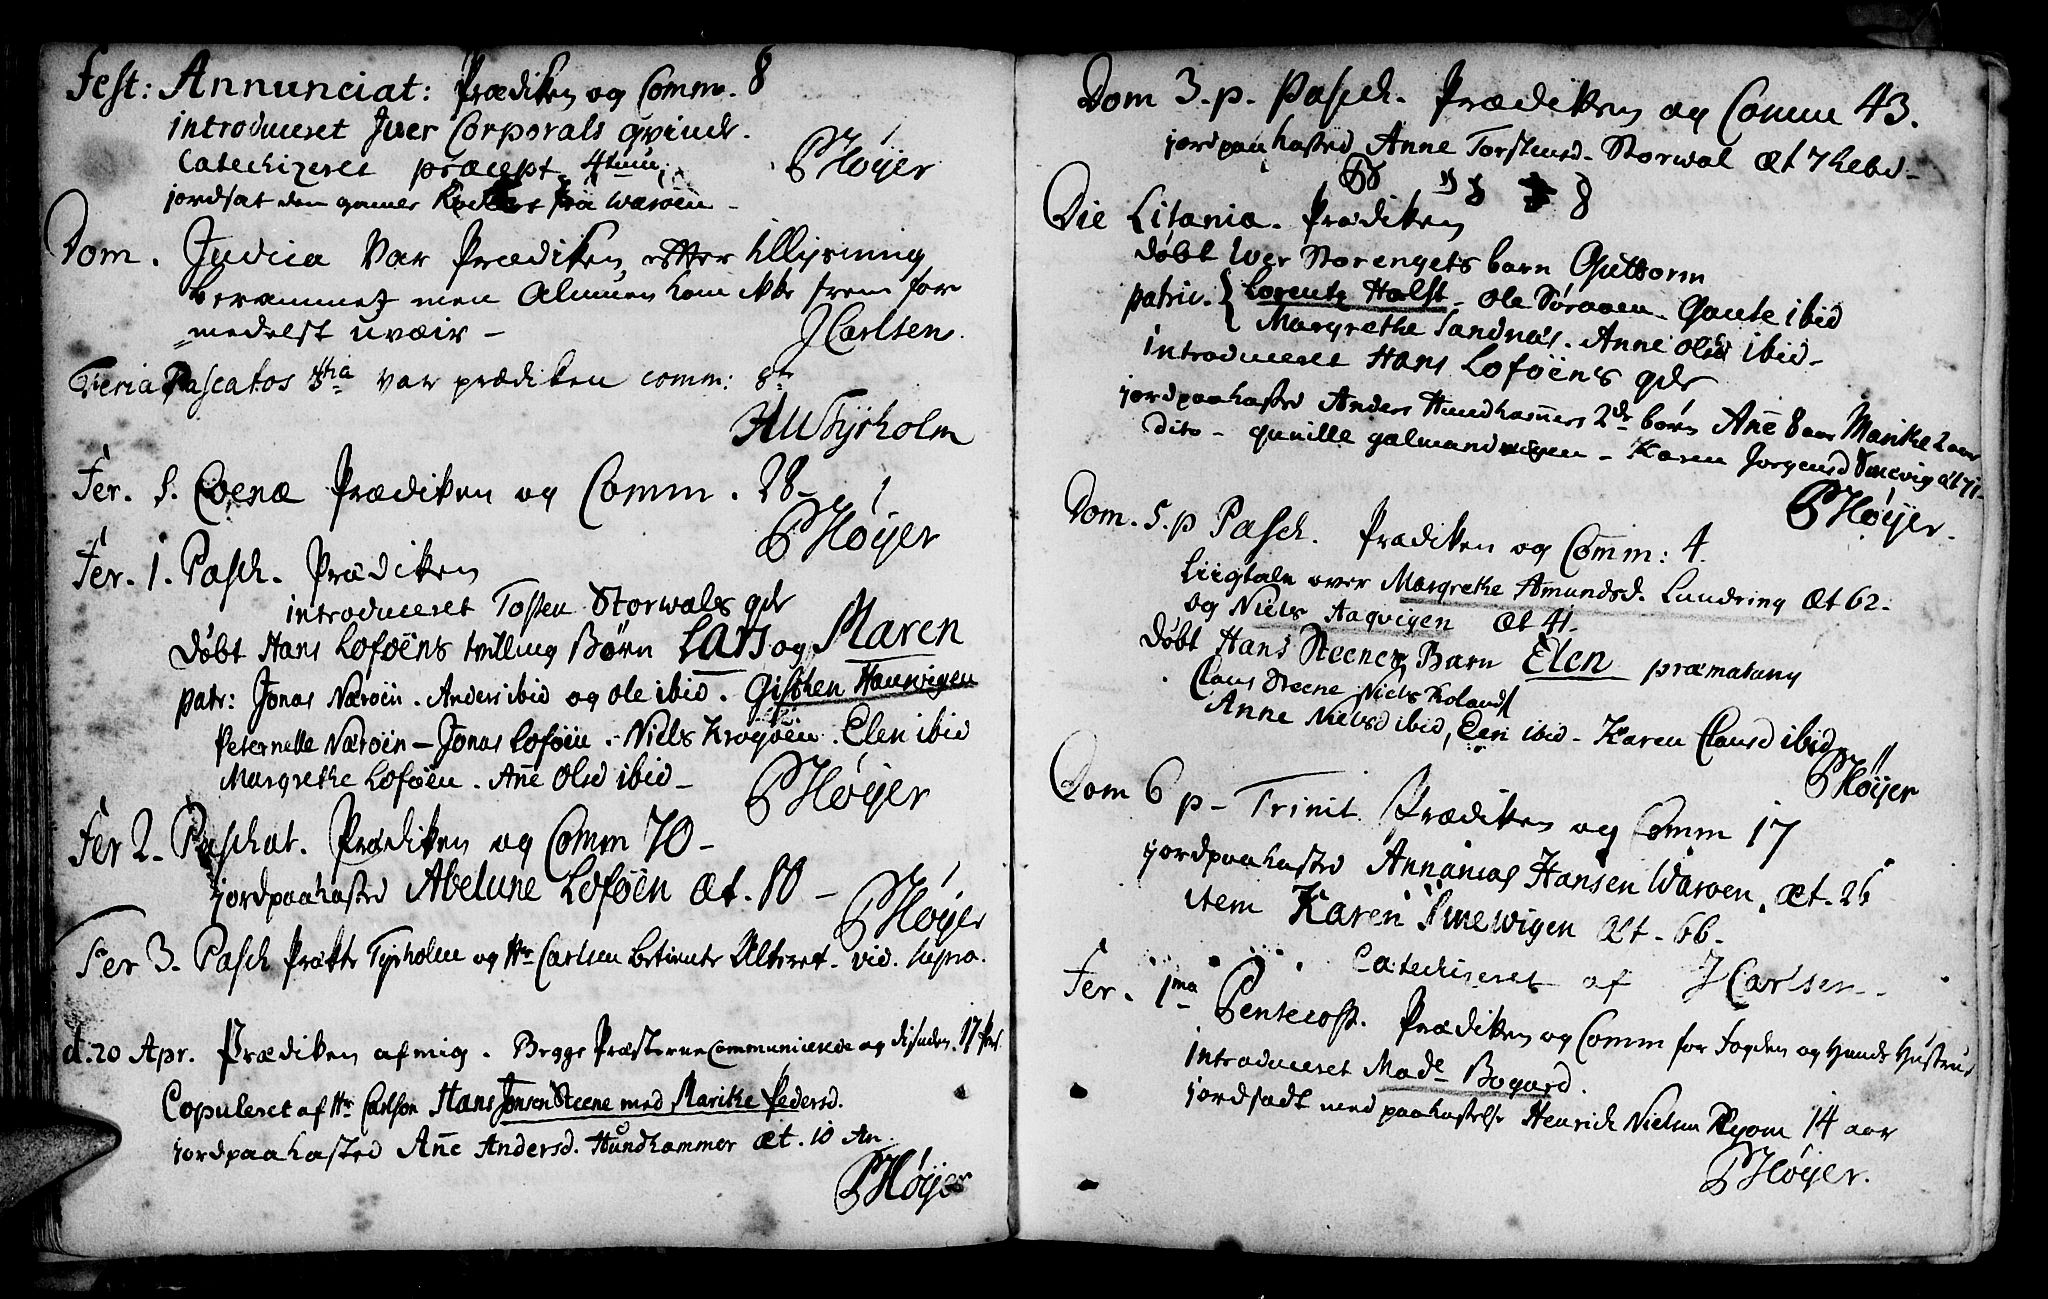 Fest: Annunciat: Prædiken og Comm. 8
introduceret Iver Corporals qvinde.
Catechizeret præcept 4tum. PHøyer
jordsat den gamel fra Wæroen
Dom. Judica var Prædiken efter tillysning
berammet men Almuen kom ikke frem for
medelst uvæir - JCarlsen.
Feria Pascatos 3tia var prædiken comm: 8te
HWTyrholm
Fer. 5. Coenæ Prædiken og Comm. 28-
PHøyer
Fer. 1. Pasch. Prædiken
introduceret Tosten Storwals qde
Døbt Hans Lofoëns tvilling Børn Lars og Maren
patr: Jonas Næroën. Anders ibid og Ole ibid. Gisken Haurvigen
Peternelle Næroën - Jonas Lofoëu. Niels Krogøen. Elen ibid
Margrethe Lofoëen. Añe Olsd ibid -
PHøyer
Fer 2. Paschat. Prædiken og Comm 70-
jordpaakasted Abelune Lofoën Æt. 80 -
PHøyer
Fer 3. Pasch Prækte Tyrholm og Hr Carlsen betiente Alteret. vid. supra.
d. 20 Apr. Prædiken af mig. Begge Præsterne Communicerede og disuden 17 Pers.
Copuleret af Hr Carlson Hans Jonsen Steene med Marike Pedersd.
jordpaakasted Añe Andersd. Hundkammer æt. 10 An
PHøyer
Dom 3. p. Pasch. Prædiken og Comm 43.
jordpaakasted Anne Torstensd. Storwal æt 7 hebd-
8
Die Litaniæ. Prædiken
døbt Iver Storengets barn Guttorm
patrin. { Lorentz Holst - Ole Søraaen - Gaute ibid
Margrethe Sandnæs. Anne Olsd ibid -
introduceret Hans Lofoëns qde
jordpaakasted Anders Hundkam̃ers 2de børn Añe 8 aar Marike 2 aar
Dito - gunille galmandvigen - Karen Jorgensd Smevig æt 71-
PHøyer.
Dom. 5. p Pasch. Prædiken og Comm: 4.
Liigtale over Margrethe Amundsd. Lundring æt 62.
og Niels Aaqvigen æt 41.
Døbt Hans Steenes Barn Elen præmatura
Claus Steene Niels Kolands
Anne Nielsd ibid, Elen ibid - Karen Clausd ibid
PHøyer
Dom 6 p - Trinit. Prædiken og Comm 17
jordpaakasted Annanias Hansen Waroen. æt. 26
item Karen Smewigen æt. 66.
Catechiseret af JCarlsen
Fer. 1ma Pentecost. Prædiken og Comm for Fogden og Hands Hustrue
introduceret Made Bogard.
jordsadt med paakastelse Henrich Nielsen Ryom 14 aar
PHøyer.